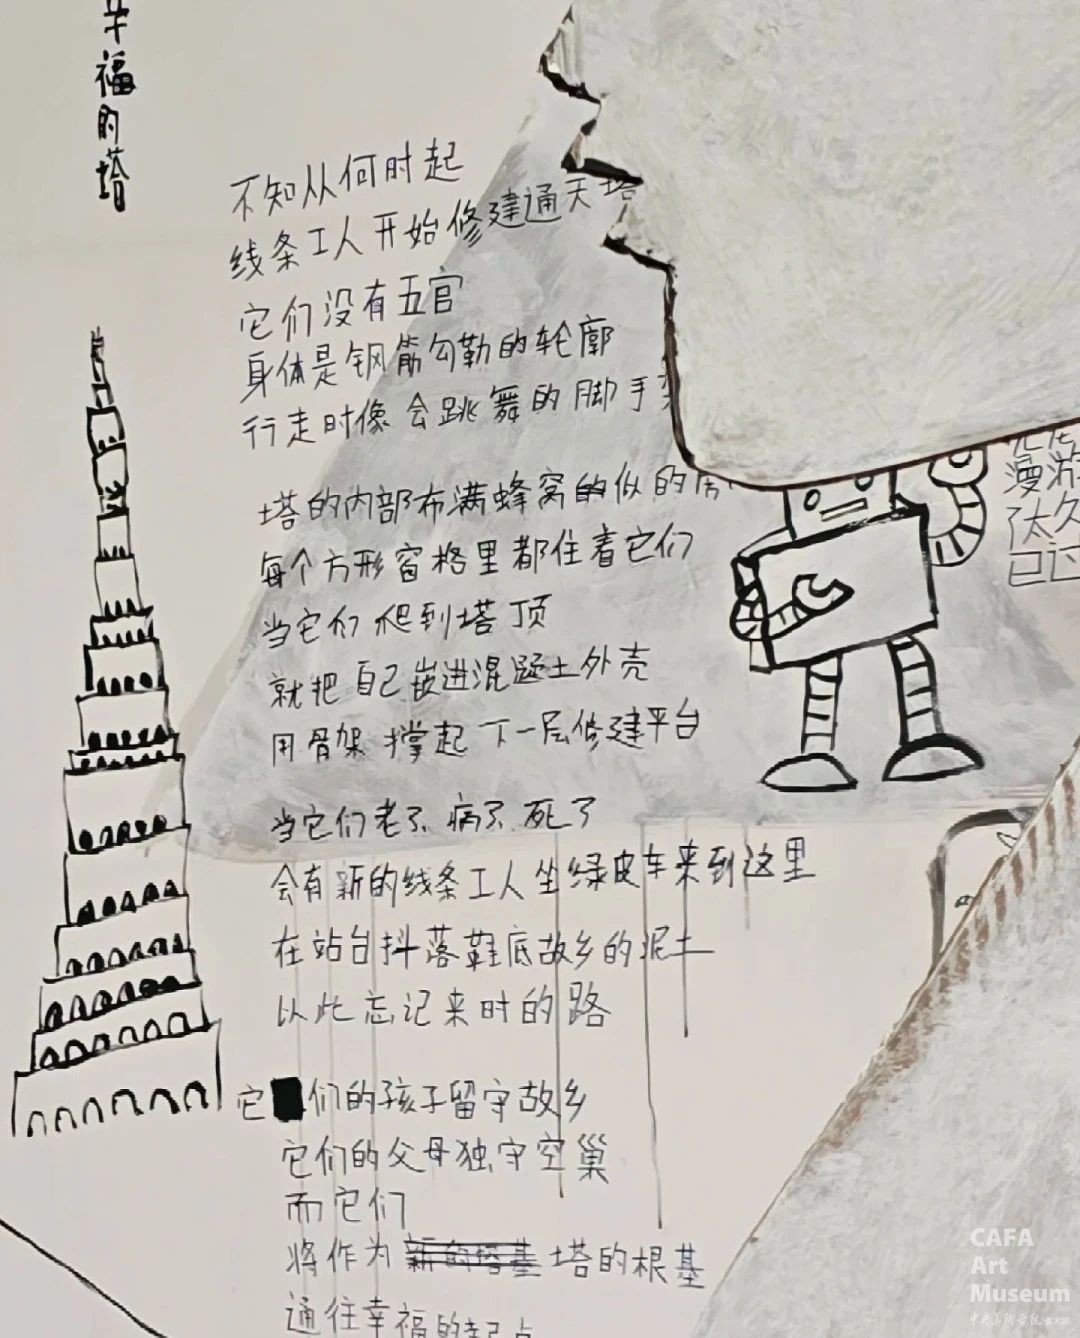 幸福的塔
不知从何时起
线条工人开始修建通天塔
它们没有五官
身体是钢筋勾勒的轮廓
行走时像会跳舞的脚手
塔的内部布满蜂窝的似的房
每个方形窗格里都住着它们
当它们爬到塔顶
就把自己嵌进混凝土外壳
用骨架撑起下一层修建平台
当它们老了病了死了
会有新的线条工人坐绿皮车来到这里
在站台抖落鞋底故乡的泥土
从此忘记来时的路
它们的孩子留守故乡
它们的父母独守空巢
而它们
将作为新的塔基塔的根基
通往幸福的起点
漫游
了太久
已过
CAFA
Art
Museum
中央美术学院美术馆